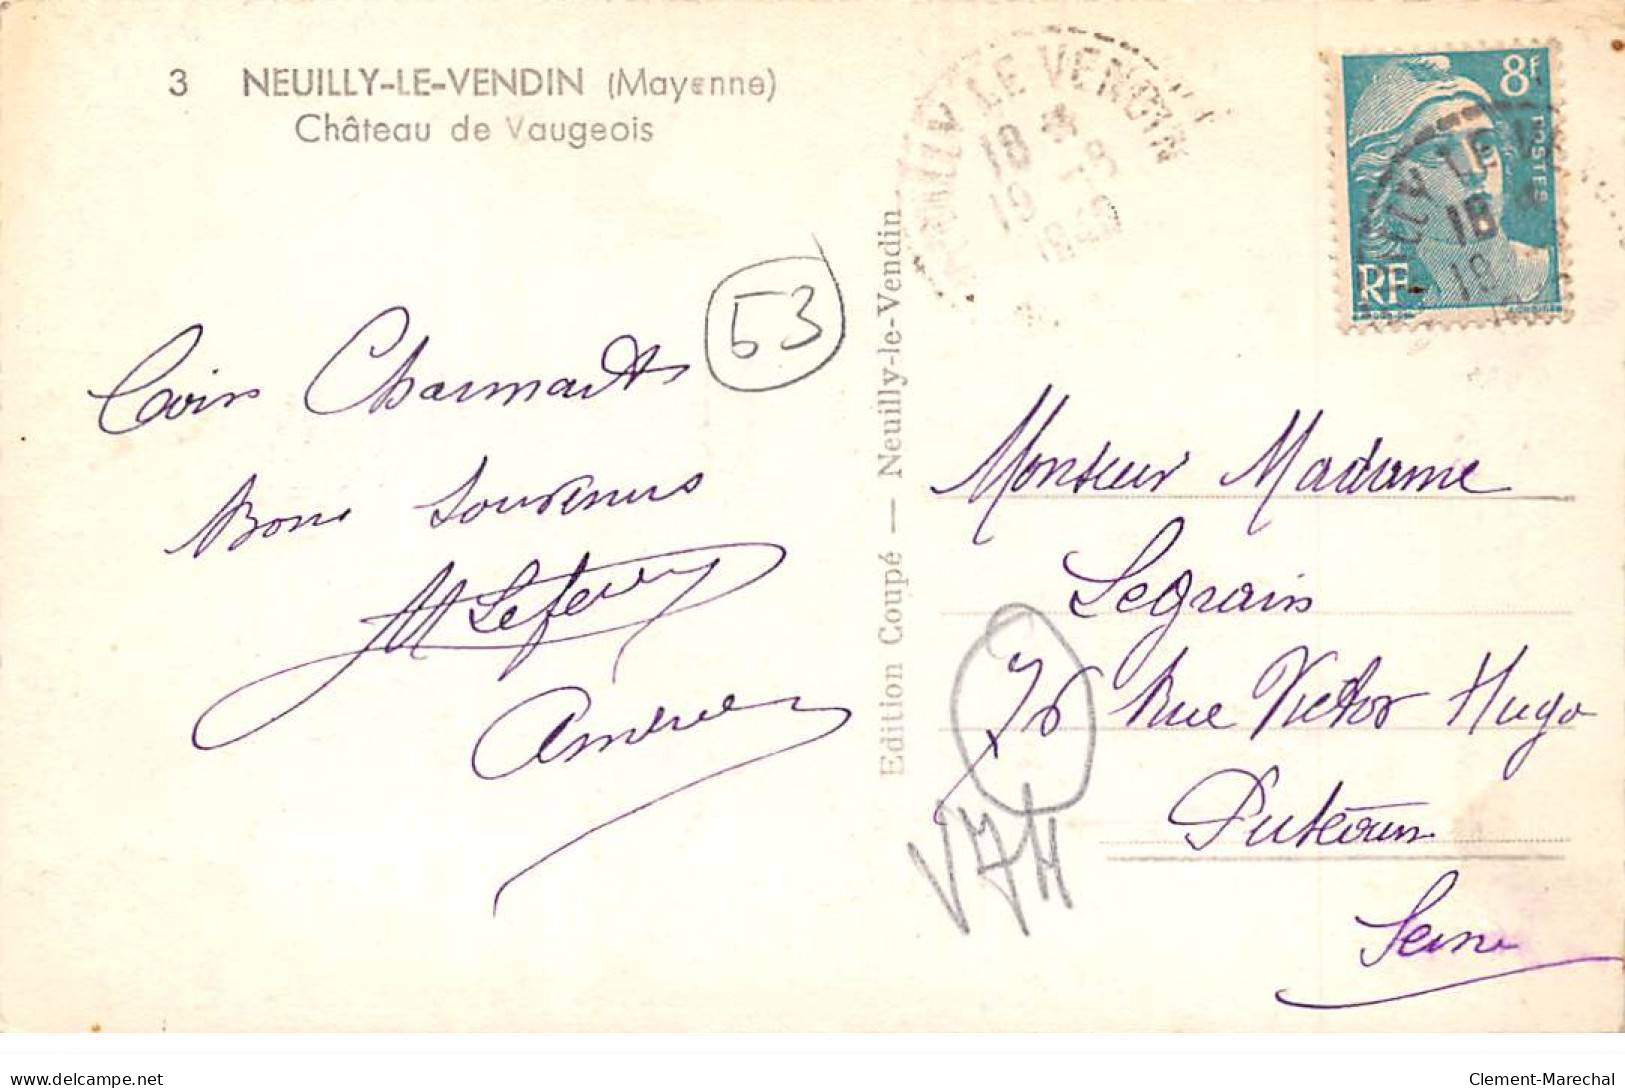 3 NEUILLY-LE-VENDIN (Mayenne)
Château de Vaugeois
53
Coins Charmants
Bons Souvenirs
Andrée
Edition Coupé — Neuilly-le-Vendin
NEUILLY LE VENDIN
18 *
19 -8
1949
8f
POSTES
RF
ILLY LE V
18
19
Monsieur Madame
Legrain
76 Rue Victor Hugo
Puteaux
Seine
V7H
delcampe.net
Clement-Marechal